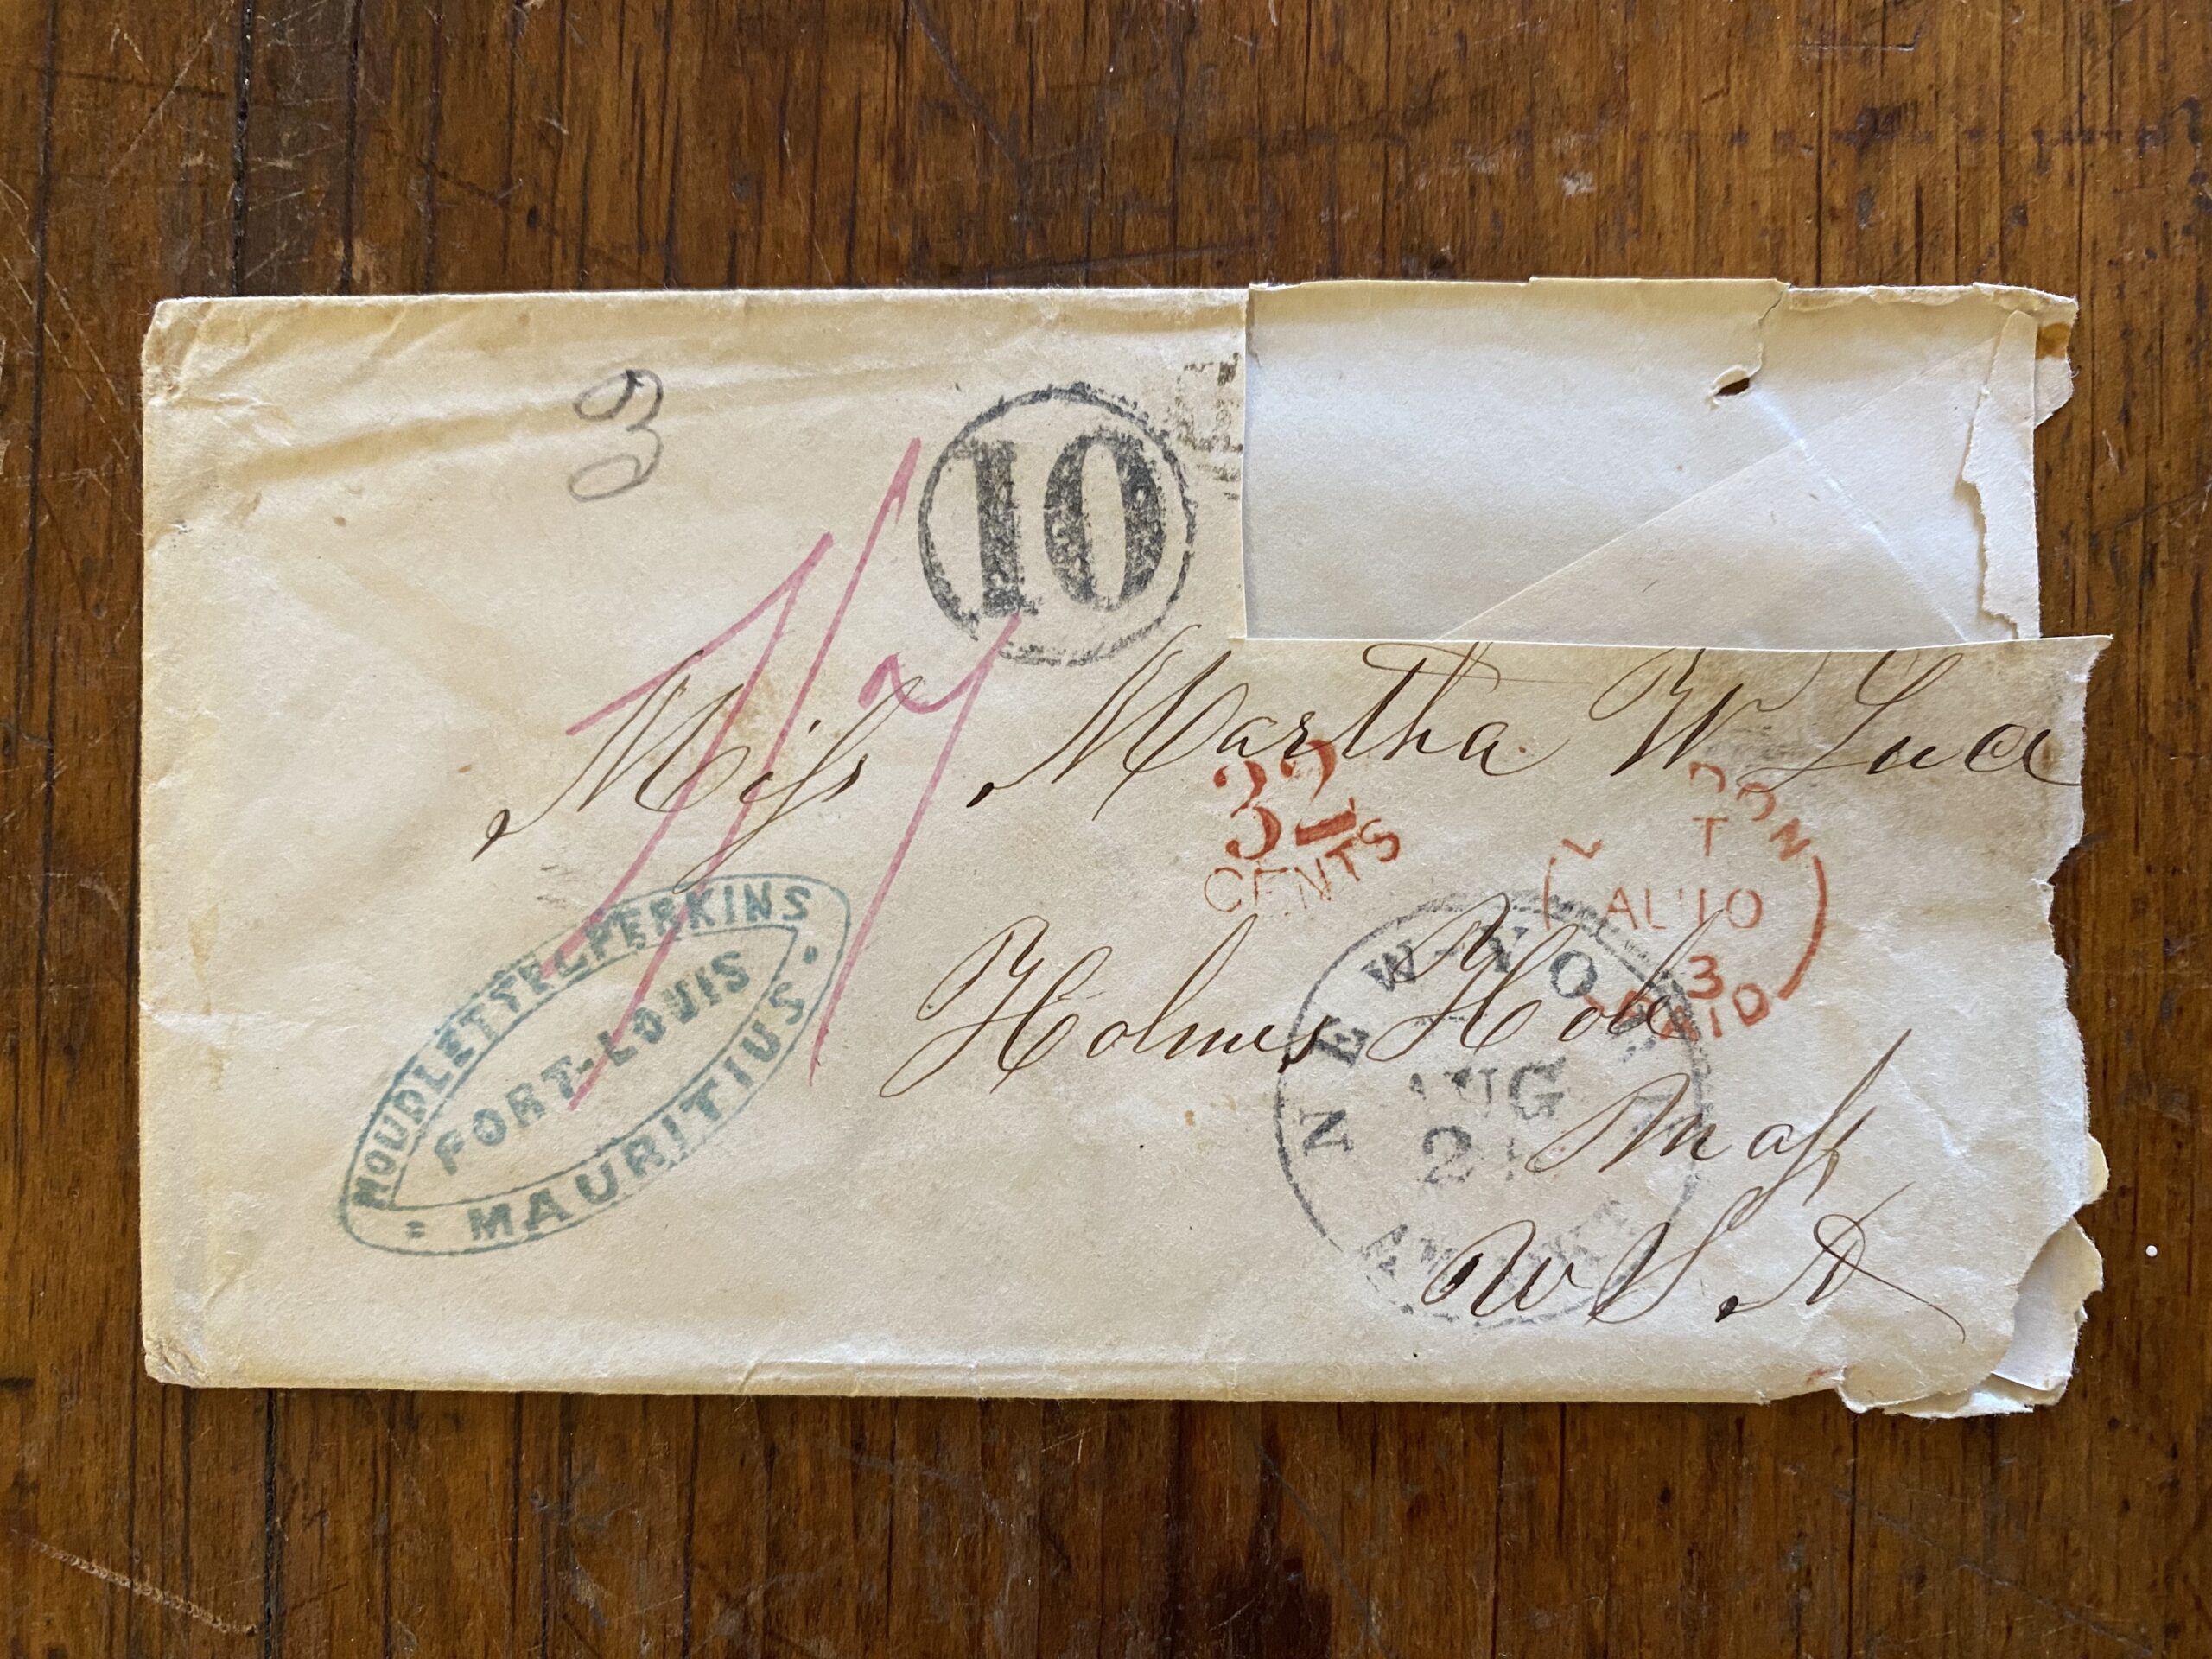 3
10
1/7
Miss Martha W Luce
32
CENTS
DON
T
AU 10
3
PAID
Holmes Hole
NEW YO
AUG
2
Mass
U S A
MOURLETTE & PERKINS
PORT-LOUIS
MAURITIUS